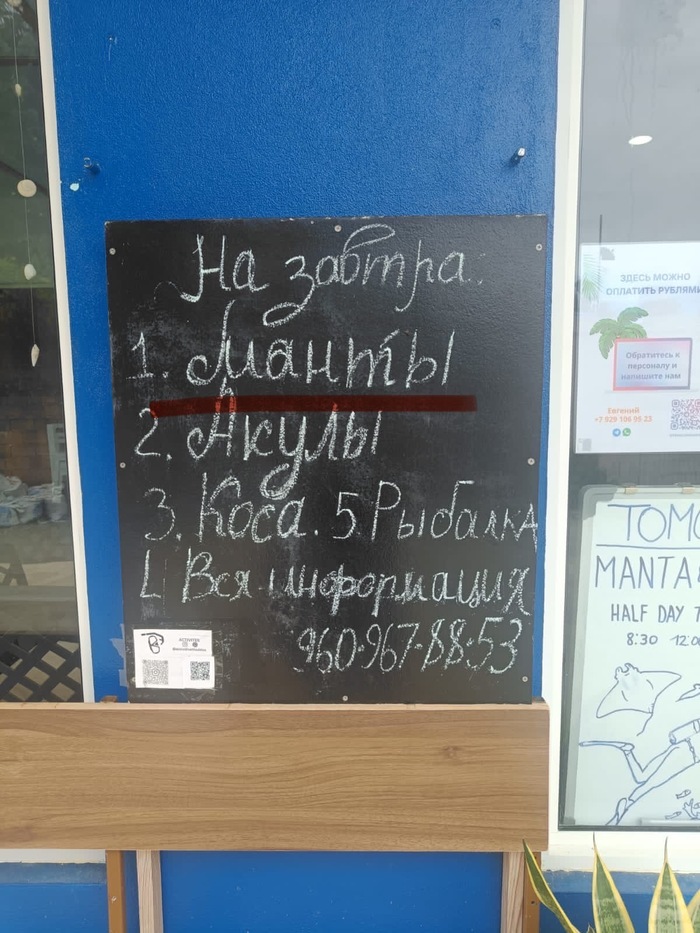 На завтра:
1. Манты
2. Акулы
3. Коса. 5 Рыбалка
L Вся информация
960-967-88-53
ACTIVITIES
ЗДЕСЬ МОЖНО
ОПЛАТИТЬ РУБЛЯМИ
Обратитесь к
персоналу и
напишите нам
Евгений
+7 929 106 06 23
TOMO
MANTA
HALF DAY T
8:30 12:00